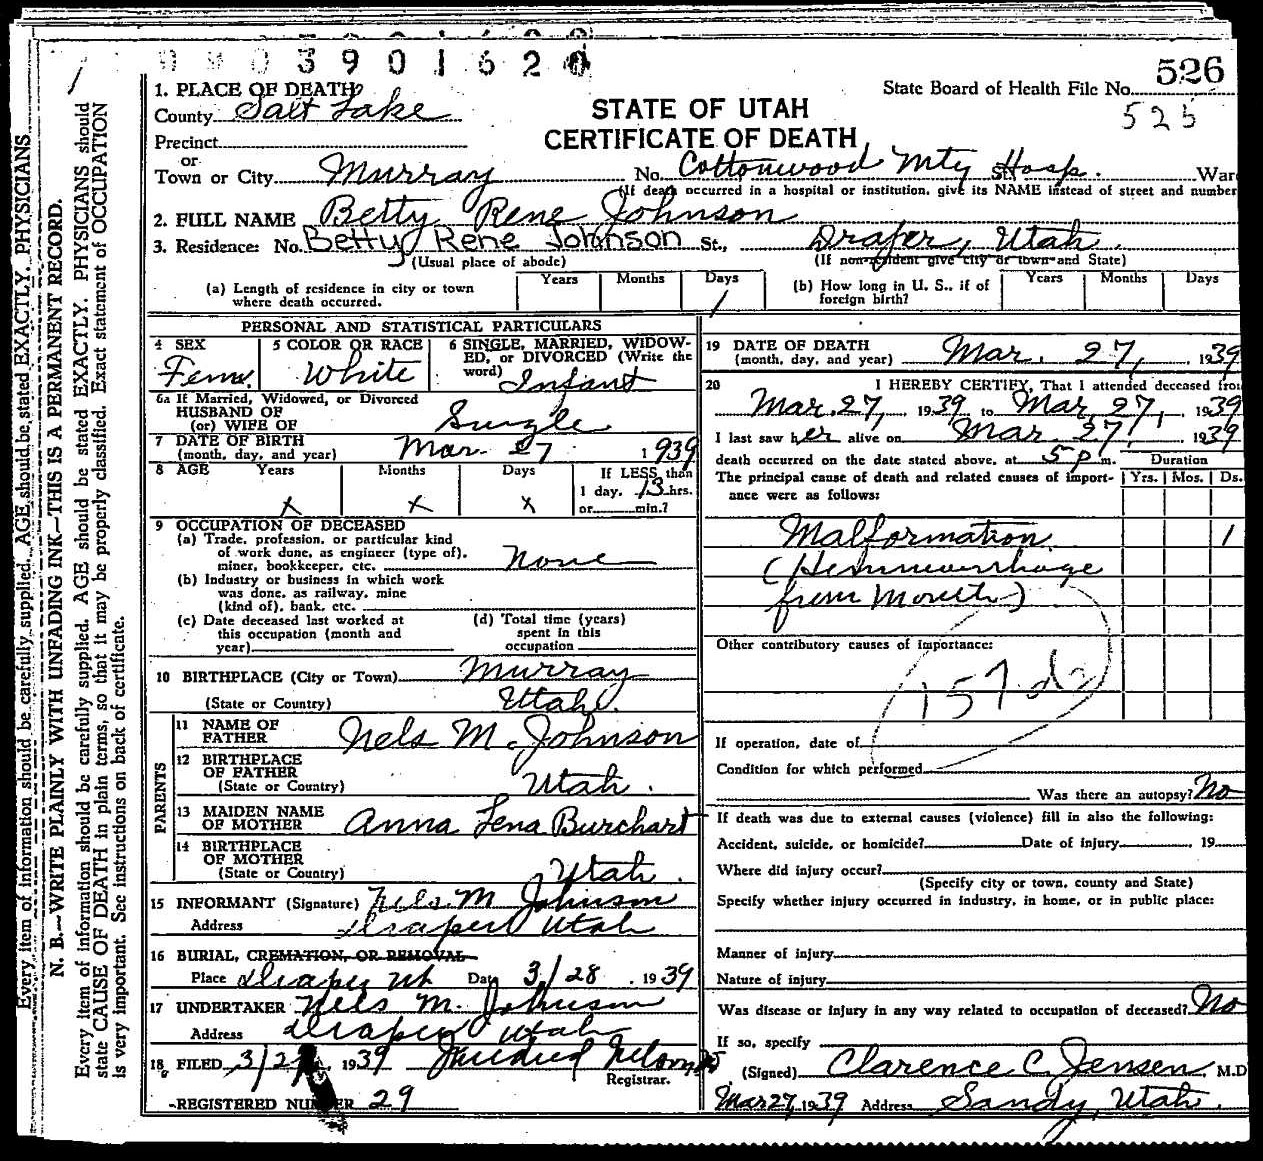 3901620
526
State Board of Health File No.
525
1. PLACE OF DEATH
County Salt Lake
STATE OF UTAH
CERTIFICATE OF DEATH
Precinct
or
Town or City Murray No. Cottonwood Mty Hosp. War
(If death occurred in a hospital or institution, give its NAME instead of street and number
2. FULL NAME Betty Rene Johnson
3. Residence: No. Betty Rene Johnson St., Draper, Utah
(Usual place of abode) (If non-resident give city or town and State)
(a) Length of residence in city or town where death occurred. Years Months Days 1
(b) How long in U. S., if of foreign birth? Years Months Days
PERSONAL AND STATISTICAL PARTICULARS
4 SEX 5 COLOR OR RACE 6 SINGLE, MARRIED, WIDOW-
ED, or DIVORCED (Write the
word)
Fem. White Infant
6a If Married, Widowed, or Divorced
HUSBAND OF
(or) WIFE OF Single
7 DATE OF BIRTH
(month, day, and year) Mar. 27 1939
8 AGE Years Months Days If LESS than
x x x 1 day, 13 hrs.
or min.?
9 OCCUPATION OF DECEASED
(a) Trade, profession, or particular kind
of work done, as engineer (type of),
miner, bookkeeper, etc. None
(b) Industry or business in which work
was done, as railway, mine
(kind of), bank, etc.
(c) Date deceased last worked at
this occupation (month and
year)
(d) Total time (years)
spent in this
occupation
10 BIRTHPLACE (City or Town) Murray
(State or Country) Utah.
PARENTS
11 NAME OF
FATHER Nels M. Johnson
12 BIRTHPLACE
OF FATHER
(State or Country) Utah.
13 MAIDEN NAME
OF MOTHER Anna Lena Burchart
14 BIRTHPLACE
OF MOTHER
(State or Country) Utah.
15 INFORMANT (Signature) Nels M Johnson
Address Draper Utah
16 BURIAL, CREMATION, OR REMOVAL
Place Draper Ut Date 3/28, 1939
17 UNDERTAKER Nels M. Johnson
Address Draper Utah
18 FILED 3/2 1939
Registrar.
REGISTERED NUMBER 29
19 DATE OF DEATH
(month, day, and year) Mar. 27, 1939
20 I HEREBY CERTIFY, That I attended deceased from
Mar. 27, 1939 to Mar. 27, 1939
I last saw her alive on Mar. 27, 1939
death occurred on the date stated above, at 5 p m. Duration
The principal cause of death and related causes of import-
ance were as follows: Yrs. Mos. Ds.
Malformation 1
(Hemmorrhage
from Mouth)
Other contributory causes of importance:
157
If operation, date of
Condition for which performed
Was there an autopsy? No
If death was due to external causes (violence) fill in also the following:
Accident, suicide, or homicide? Date of injury , 19
Where did injury occur?
(Specify city or town, county and State)
Specify whether injury occurred in industry, in home, or in public place:
Manner of injury
Nature of injury
Was disease or injury in any way related to occupation of deceased? No
If so, specify
(Signed) Clarence C. Jensen M.D
Mar 27, 1939 Address Sandy, Utah.
Every item of information should be carefully supplied. AGE should be stated EXACTLY. PHYSICIANS
N. B.—WRITE PLAINLY WITH UNFADING INK—THIS IS A PERMANENT RECORD.
Every item of information should be carefully supplied. AGE should be stated EXACTLY. PHYSICIANS should
state CAUSE OF DEATH in plain terms, so that it may be properly classified. Exact statement of OCCUPATION
is very important. See instructions on back of certificate.